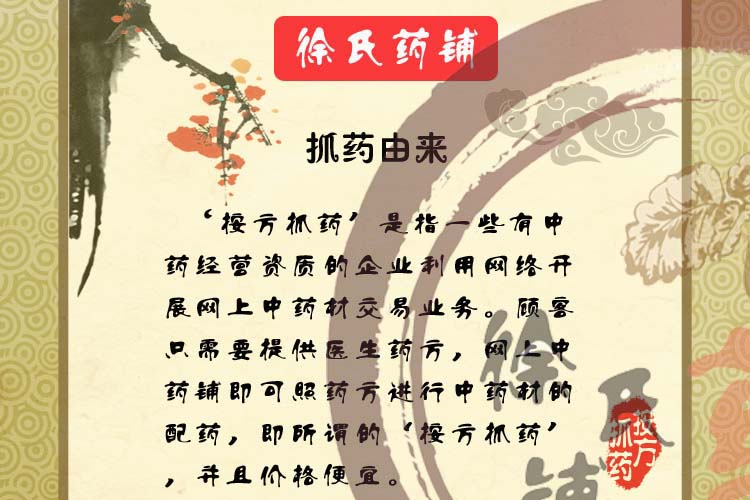 徐氏药铺
抓药由来
‘按方抓药’是指一些有中
药经营资质的企业利用网络开
展网上中药材交易业务。顾客
只需要提供医生药方，网上中
药铺即可照药方进行中药材的
配药，即所谓的‘按方抓药’
，并且价格便宜。
徐氏
铺
按方
抓药